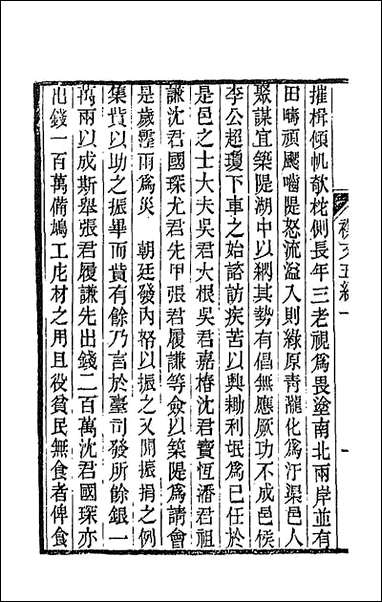 摧楫傾帆欹柁側長年三老視爲畏塗南北兩岸並有
田疇頑颷嚙隄怒流溢入則綠原青隴化爲汙渠邑人
聚謀宜築隄湖中以綱其勢有倡無應厥功不成邑侯
李公超瓊下車之始諮訪疾苦以興耡利氓爲已任於
是邑之士大夫吳君大根吳君嘉椿沈君寶恆潘君祖
謙沈君國琛尤君先甲張君履謙等僉以築隄爲請會
是歲霪雨爲災　朝廷發內帑以振之又開振捐之例
集貲以助之振畢而貲有餘乃言於臺司發所餘銀一
萬兩以成斯舉張君履謙先出錢二百萬沈君國琛亦
出錢一百萬備鳩工庀材之用且役貧民無食者俾食